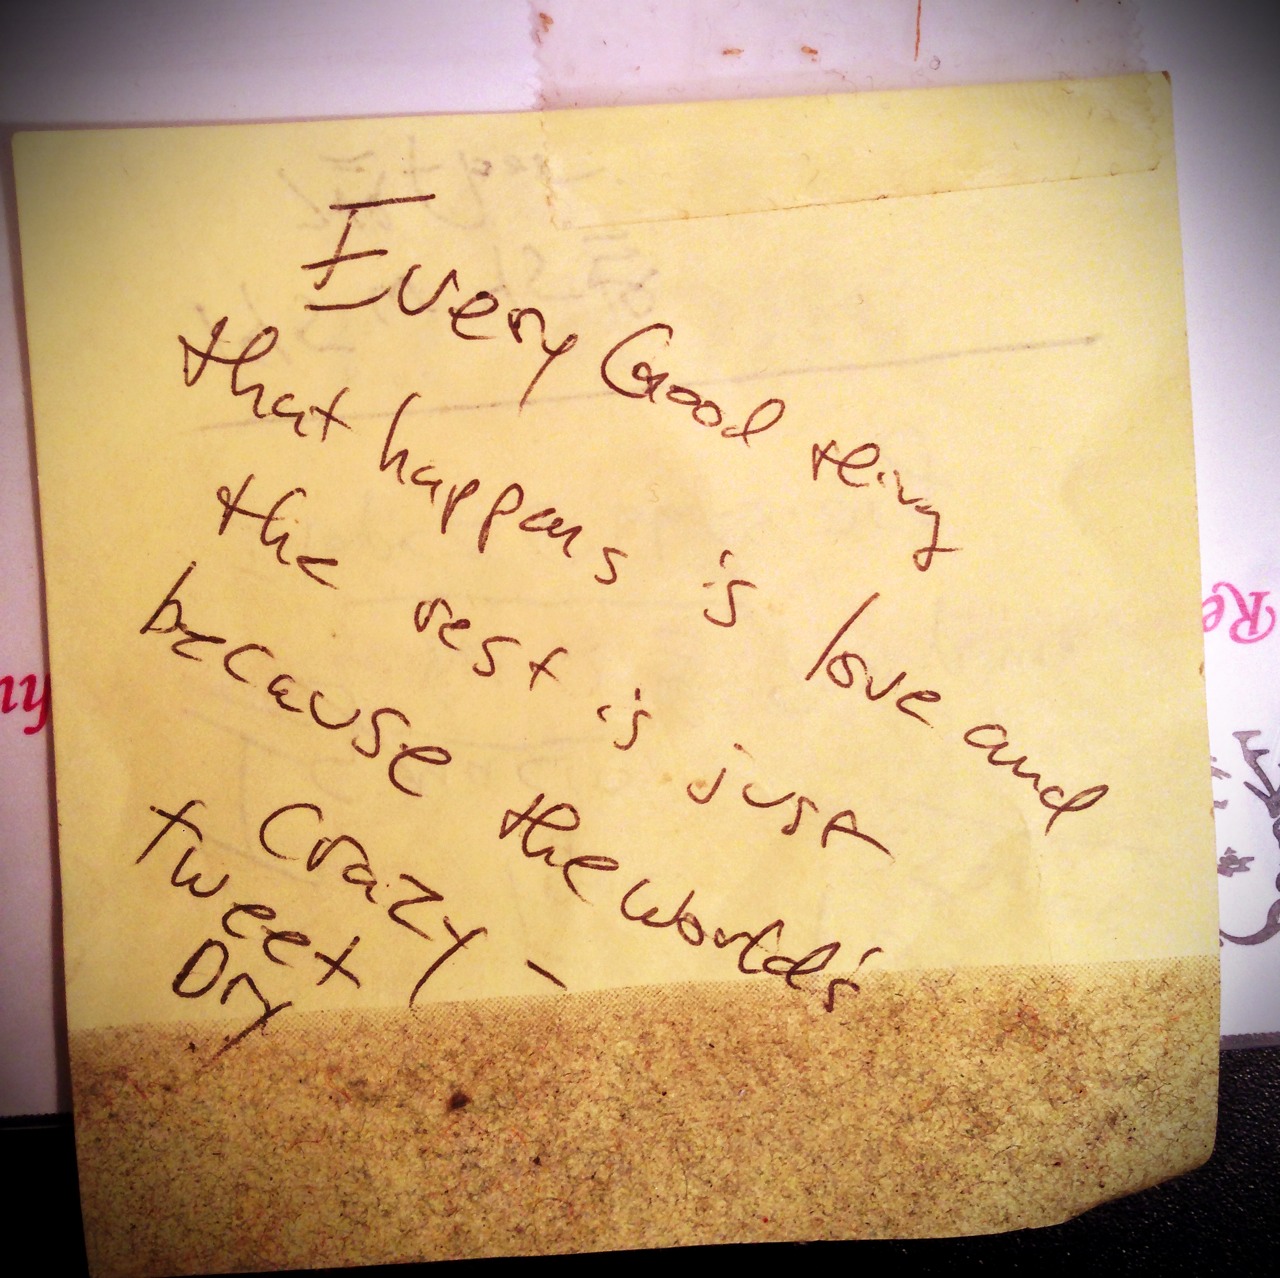 Every Good thing
that happens is love and
the rest is just
because the world's
crazy -
tweet
Dry
Re